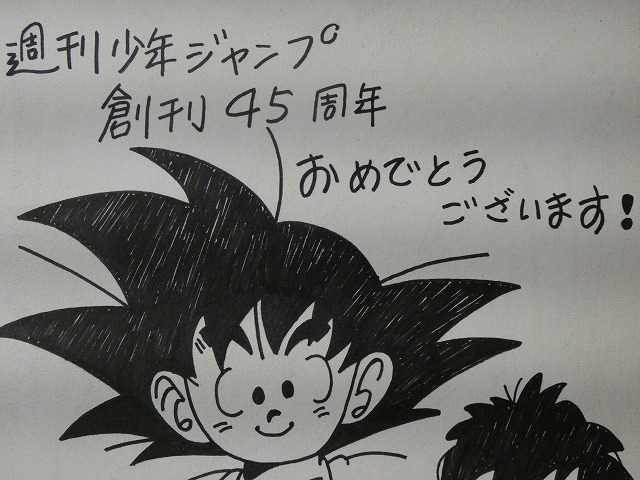 週刊少年ジャンプ
創刊45周年
おめでとう
ございます!